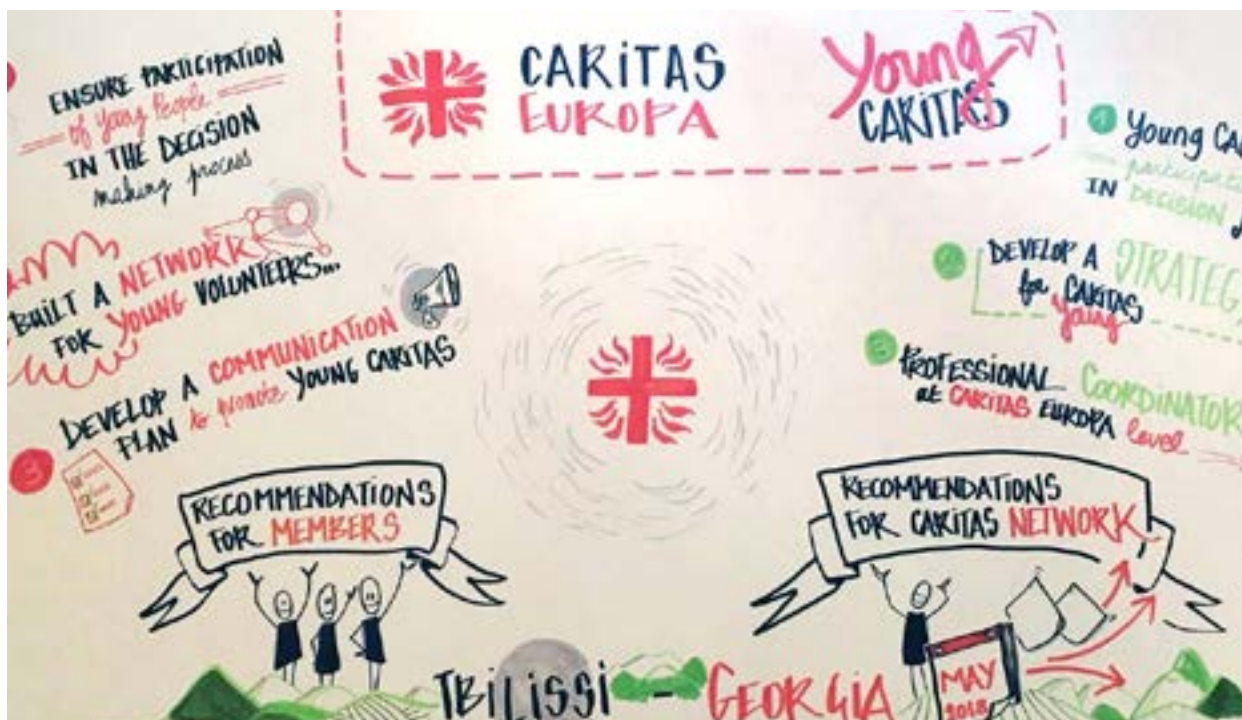 CARiTAS
EUROPA
Young
CARITAS
ENSURE PARTICIPATION
of Young People
IN THE DECISION
making process
BUiLT A NETWORK
FOR YOUNG VOLUNTEERS...
DEVELOP A COMMUNICATION
PLAN to promote YOUNG CARITAS
3
RECOMMENDATIONS
FOR MEMBERS
1
Young CA
IN DECISION
DEVELOP A STRATEG
for CARITAS
Young
PROFESSIONAL COORDINATOR
at CARITAS EUROPA level
RECOMMENDATIONS
FOR CARITAS NETWORK
TBiLiSSi - GEORGiA
MAY
2018